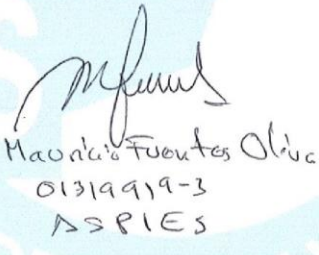 Mauricio Fuentes Oliva
01319919-3
ASPIES